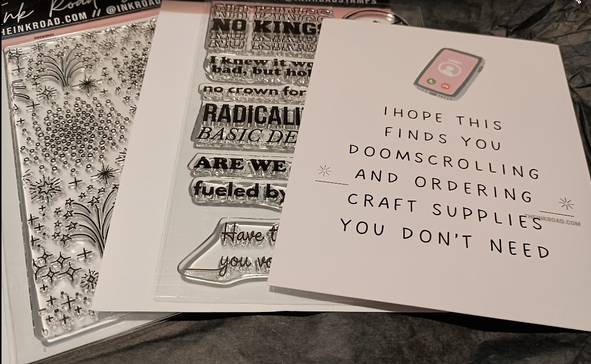 nk Road
HEINKROAD.COM // @INKROAD
INKROADSTAMPS
NO KING
I knew it w
bad, but hol
no crown for
RADICALI
BASIC DE
ARE WE
fueled by
Have t
you vo
I HOPE THIS
FINDS YOU
DOOMSCROLLING
AND ORDERING
CRAFT SUPPLIES
YOU DON'T NEED
INKROAD.COM